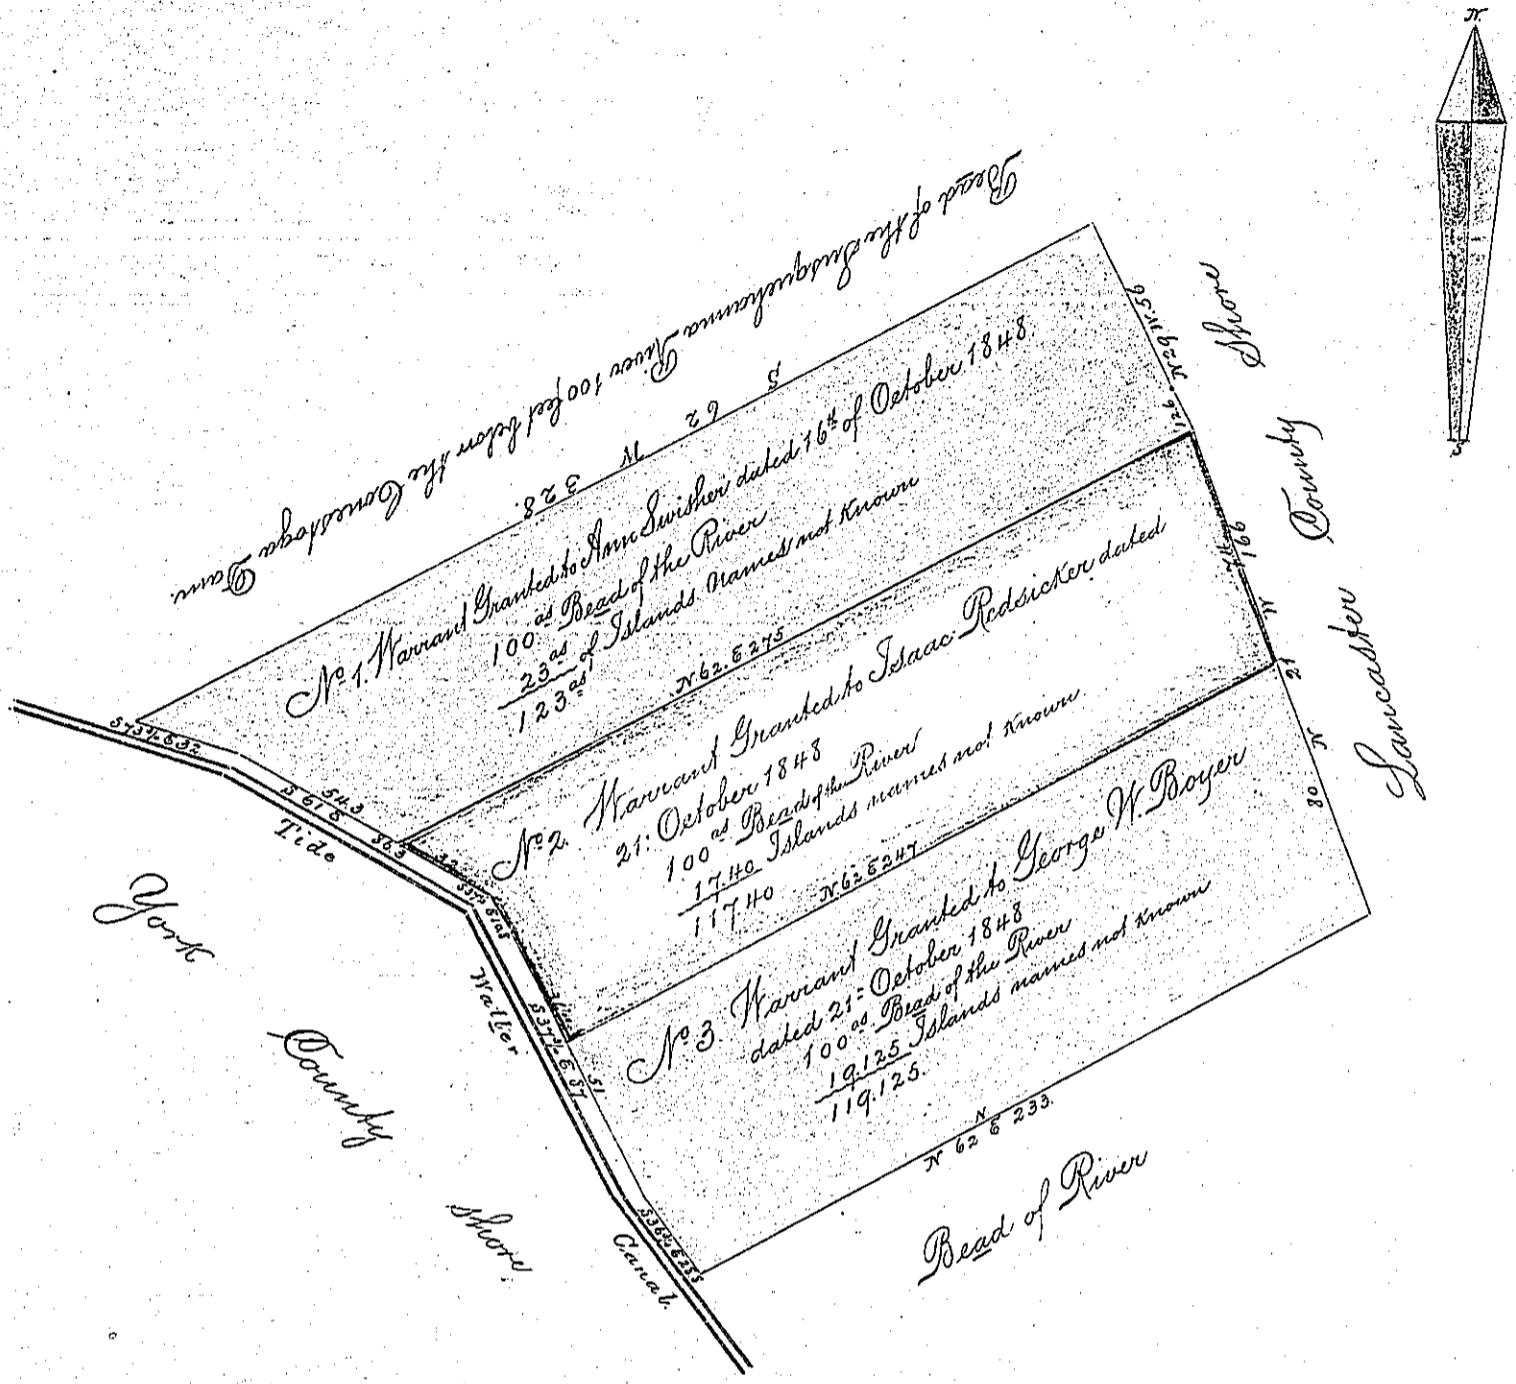 N.
Bead of the Susquehanna River 100 feet below the Conestoga Dam.
S 62 W 328.
N 29 W. 56
126
No 1. Warrant Granted to Ann Swisher dated 16th of October 1848
100 as Bead of the River
23 as of Islands Names not Known
123 as
N 62. E 275
No 2. Warrant Granted to Isaac Redsicker dated
21: October 1848
100 as Bead of the River
17.40 Islands names not Known
117.40
N 62 E 247
No 3. Warrant Granted to George W. Boyer
dated 21= October 1848
100 as Bead of the River
19.125 Islands names not Known
119.125.
N 62 E 233.
N
Bead of River
Lancaster County Shore
74
166
N 21 W
80
S 73 3/4 E 32
54.3
S 61 E
86.3
S 37 3/4 E 87
51
Tide Watter Canal.
York County Shore.